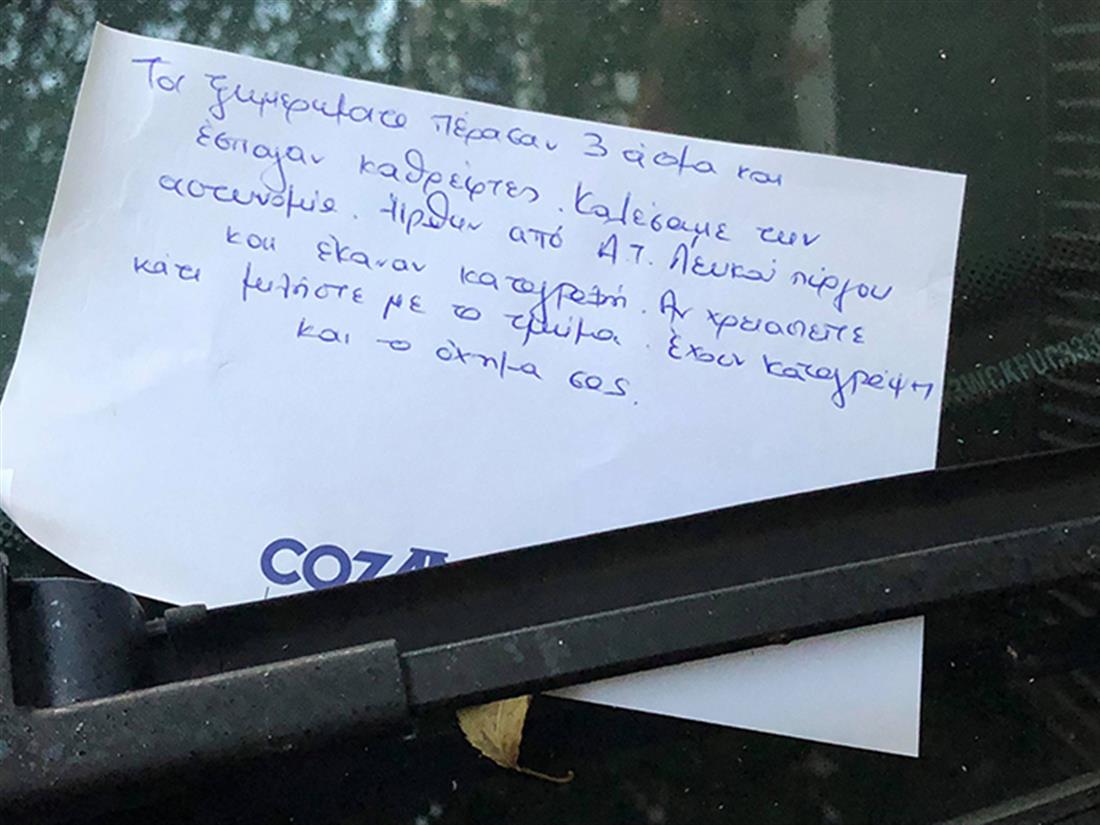 Τα ξημερώματα πέρασαν 3 άτομα και
έσπαγαν καθρέφτες. Καλέσαμε την
αστυνομία. Ήρθαν από Α.Τ. Λευκού πύργου
και έκαναν καταγραφή. Αν χρειαστείτε
κάτι μιλήστε με το τμήμα. Έχουν καταγράψη
και το όχημα σας.
COZA